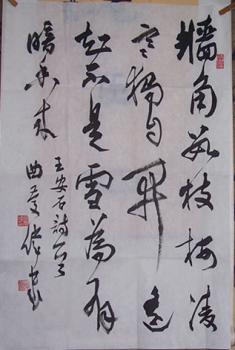 牆角數枝梅凌
寒獨自開遙
知不是雪為有
暗香來
王安石詩一首
曲